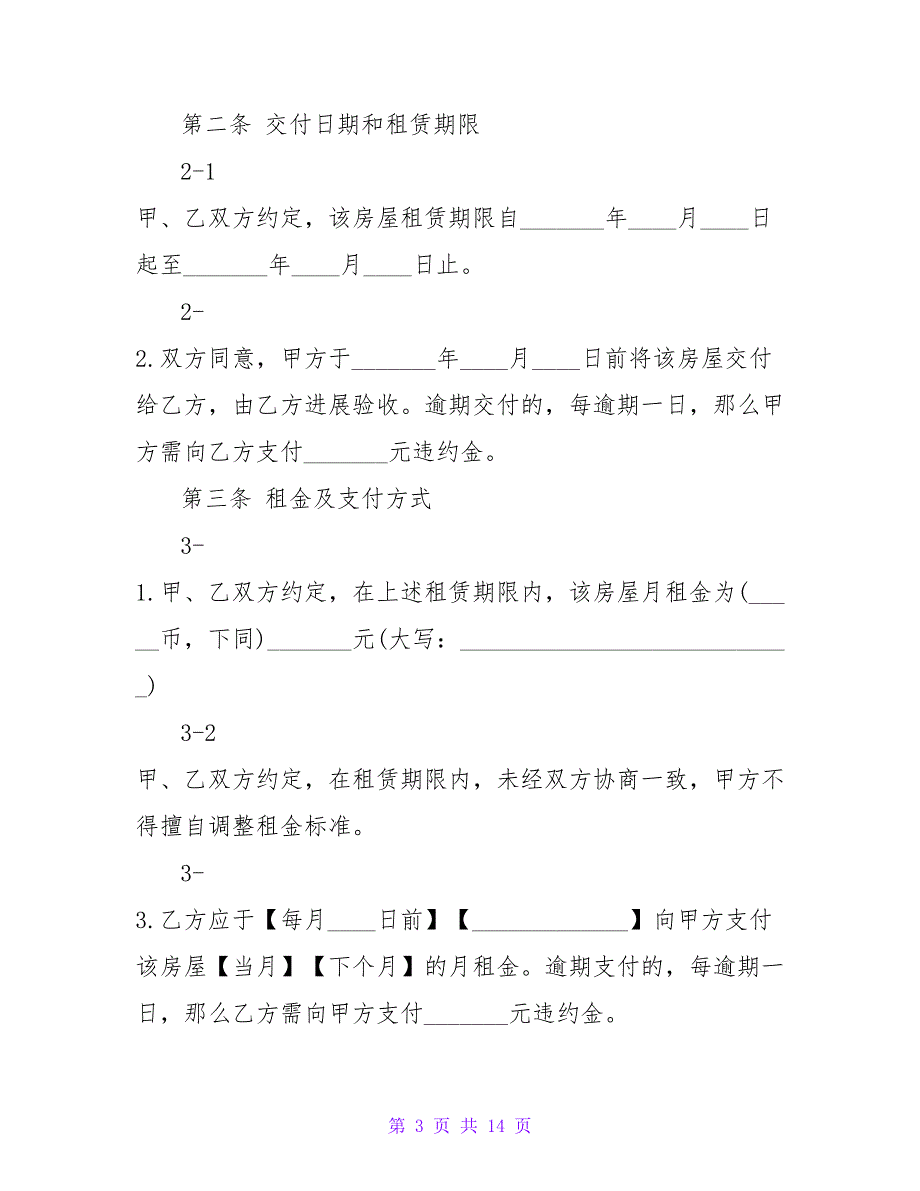 第二条 交付日期和租赁期限
2-1
甲、乙双方约定，该房屋租赁期限自_______年____月____日
起至_______年____月____日止。
2-
2.双方同意，甲方于_______年____月____日前将该房屋交付
给乙方，由乙方进展验收。逾期交付的，每逾期一日，那么甲
方需向乙方支付_______元违约金。
第三条 租金及支付方式
3-
1.甲、乙双方约定，在上述租赁期限内，该房屋月租金为(___
__币，下同)_______元(大写：___________________________
_)
3-2
甲、乙双方约定，在租赁期限内，未经双方协商一致，甲方不
得擅自调整租金标准。
3-
3.乙方应于【每月____日前】【_____________】向甲方支付
该房屋【当月】【下个月】的月租金。逾期支付的，每逾期一
日，那么乙方需向甲方支付_______元违约金。
第 3 页 共 14 页